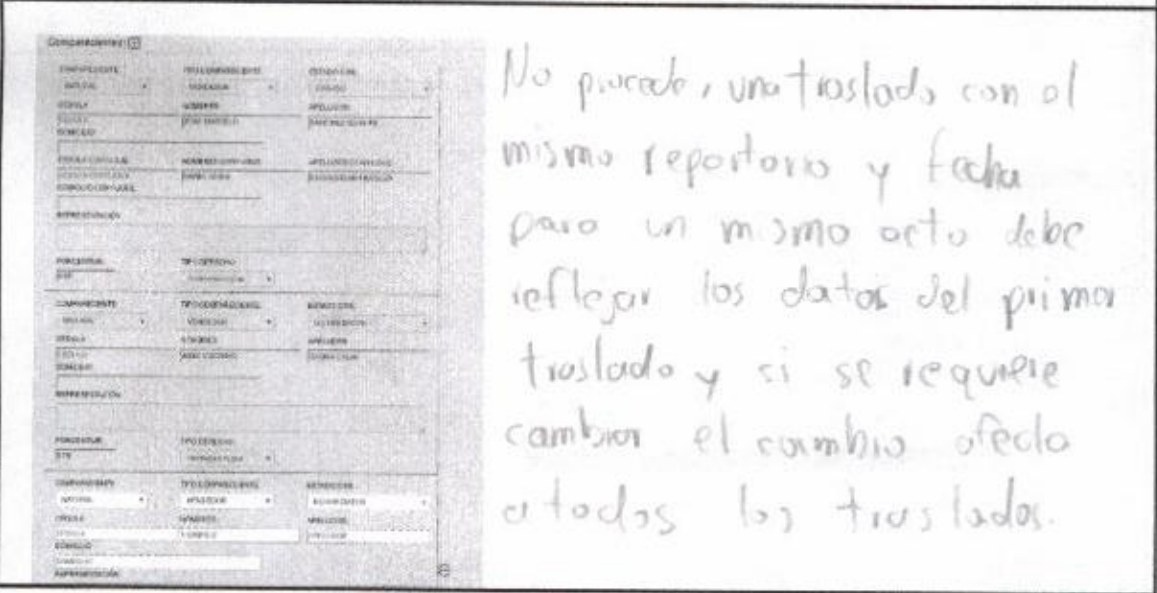 Comparecientes
COMPARECIENTE TIPO COMPARECIENTE ESTADO CIVIL
NATURAL VENDEDOR CASADO
CÉDULA NOMBRES APELLIDOS
DOMICILIO
CÉDULA CONYUGUE NOMBRES CONYUGUE APELLIDOS CONYUGUE
DOMICILIO CONYUGUE
REPRESENTACIÓN
PORCENTAJE TIPO DERECHO
COMPARECIENTE TIPO COMPARECIENTE ESTADO CIVIL
NATURAL VENDEDOR
CÉDULA NOMBRES APELLIDOS
DOMICILIO
REPRESENTACIÓN
PORCENTAJE TIPO DERECHO
COMPARECIENTE TIPO COMPARECIENTE ESTADO CIVIL
NATURAL VENDEDOR
CÉDULA NOMBRES APELLIDOS
DOMICILIO
REPRESENTACIÓN
No procede, una traslado con el
mismo reportorio y fecha
para un mismo acto debe
reflejar los datos del primer
traslado y si se requiere
cambiar el cambio afecta
a todos los traslados.